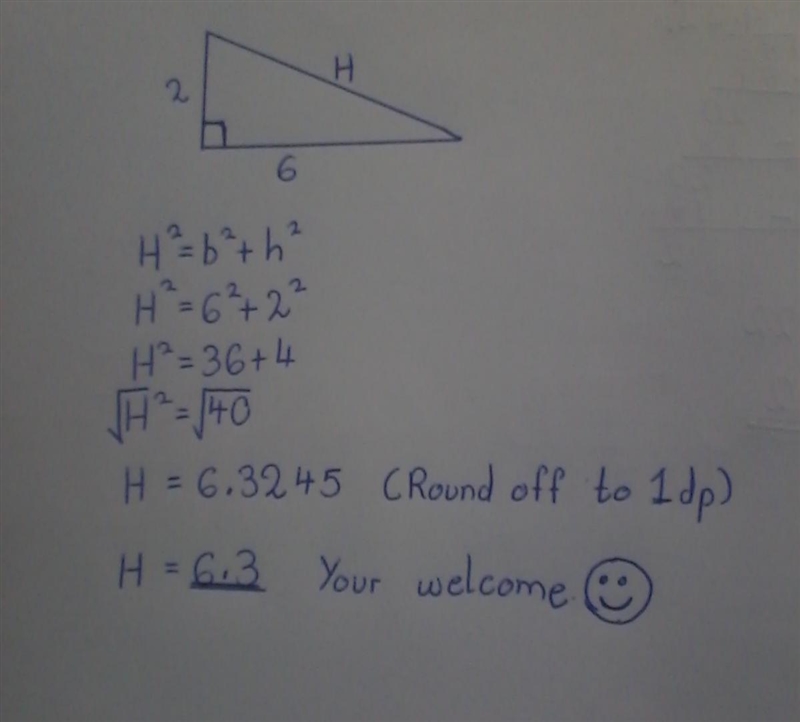 H
2
6
H²=b²+h²
H²=6²+2²
H²=36+4
√H²=√40
H = 6.3245 (Round off to 1dp)
H = 6.3 Your welcome